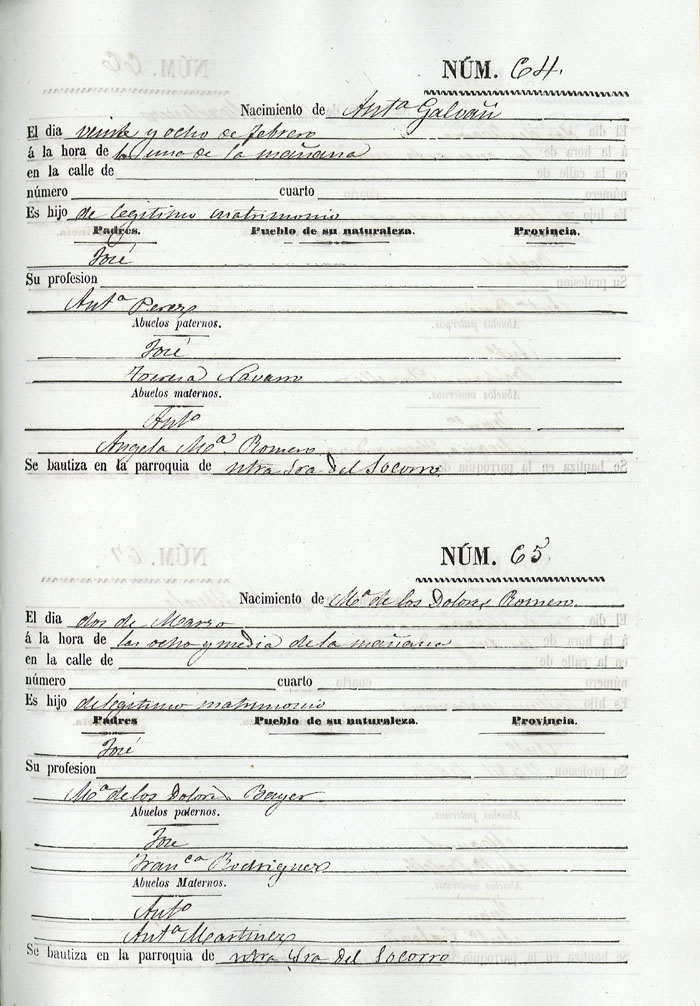 NÚM. 64.
Nacimiento de Antª Galvañ
El dia veinte y ocho de febrero
á la hora de la una de la mañana
en la calle de
número cuarto
Es hijo de legitimo matrimonio
Padres. Pueblo de su naturaleza. Provincia.
José
Su profesion
Antª Perez
Abuelos paternos.
José
Teresa Navarro
Abuelos maternos.
Antº
Angela Mª Romero
Se bautiza en la parroquia de ntra Sra del Socorro
NÚM. 65
Nacimiento de Mª de los Dolores Romero.
El dia dos de Marzo
á la hora de las ocho y media de la mañana
en la calle de
número cuarto
Es hijo de legitimo matrimonio
Padres Pueblo de su naturaleza. Provincia.
José
Su profesion
Mª de los Dolores
Abuelos paternos.
José
Francª Rodriguez
Abuelos Maternos.
Antº
Antª Martinez
Se bautiza en la parroquia de ntra Sra del Socorro